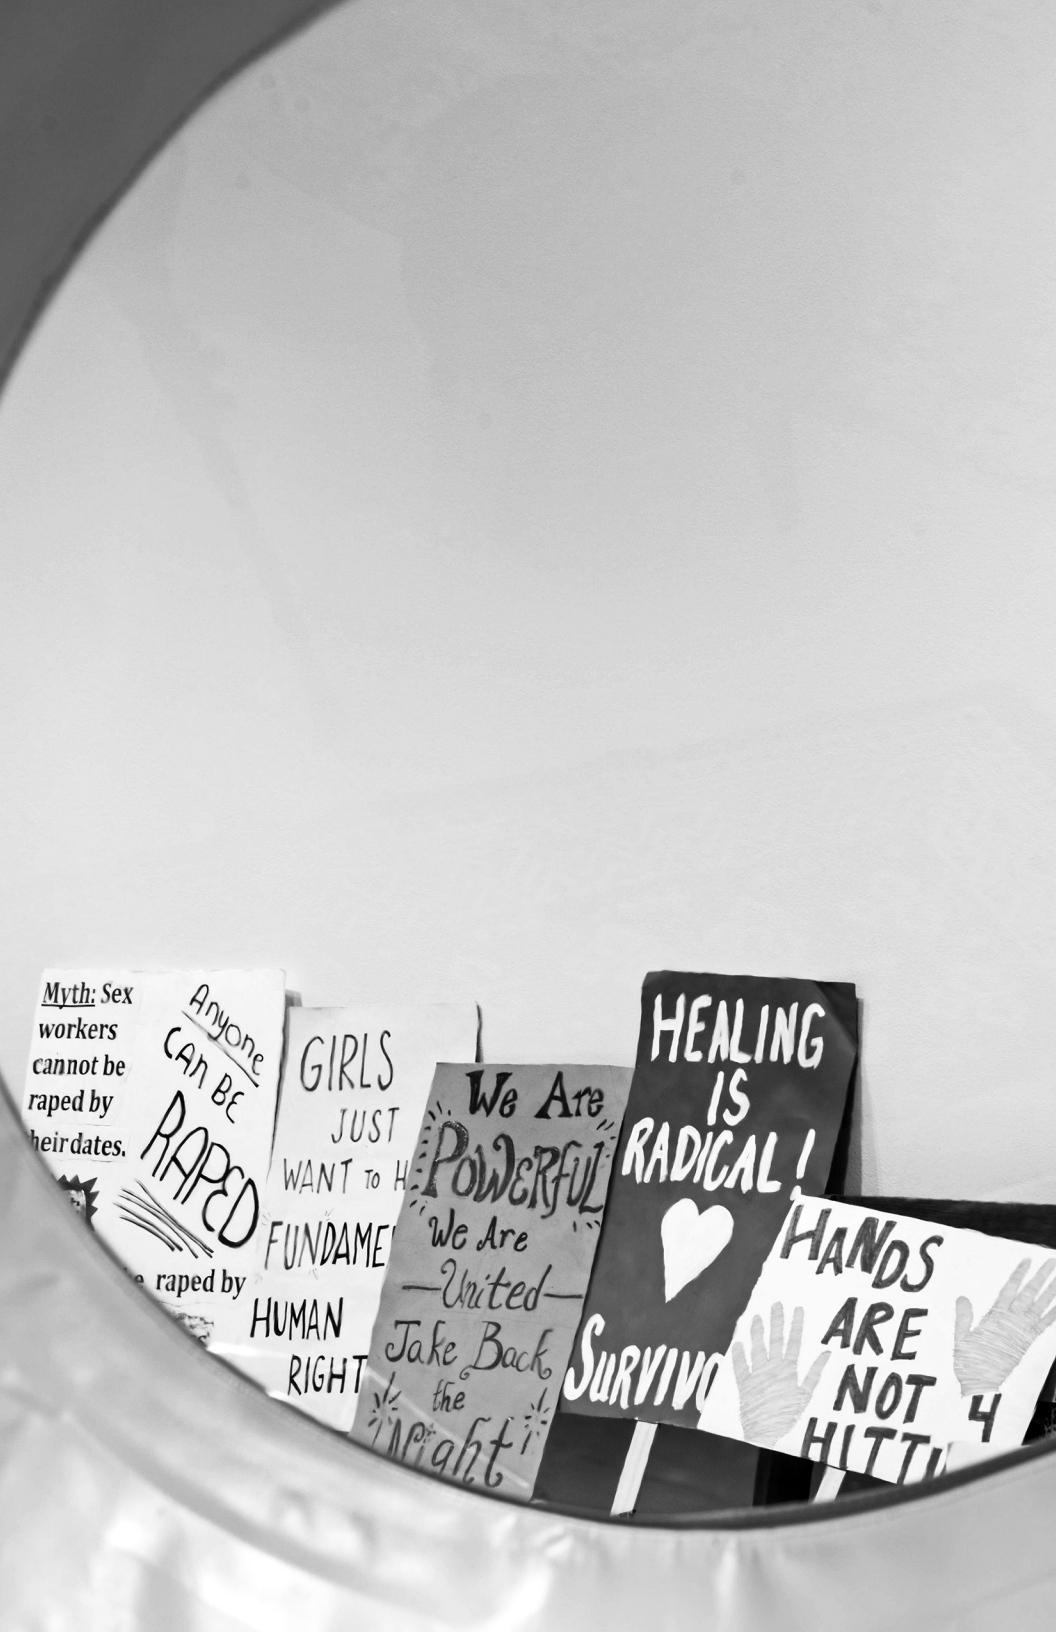 Myth: Sex
workers
cannot be
raped by
heir dates.
Anyone
CAN BE
RAPED
raped by
GIRLS
JUST
WANT TO H
FUNDAME
HUMAN
RIGHT
We Are
POWERFUL
We Are
—United—
Take Back
the
Night!
HEALING
IS
RADICAL!
SURVIVO
HANDS
ARE
NOT
4
HITTI